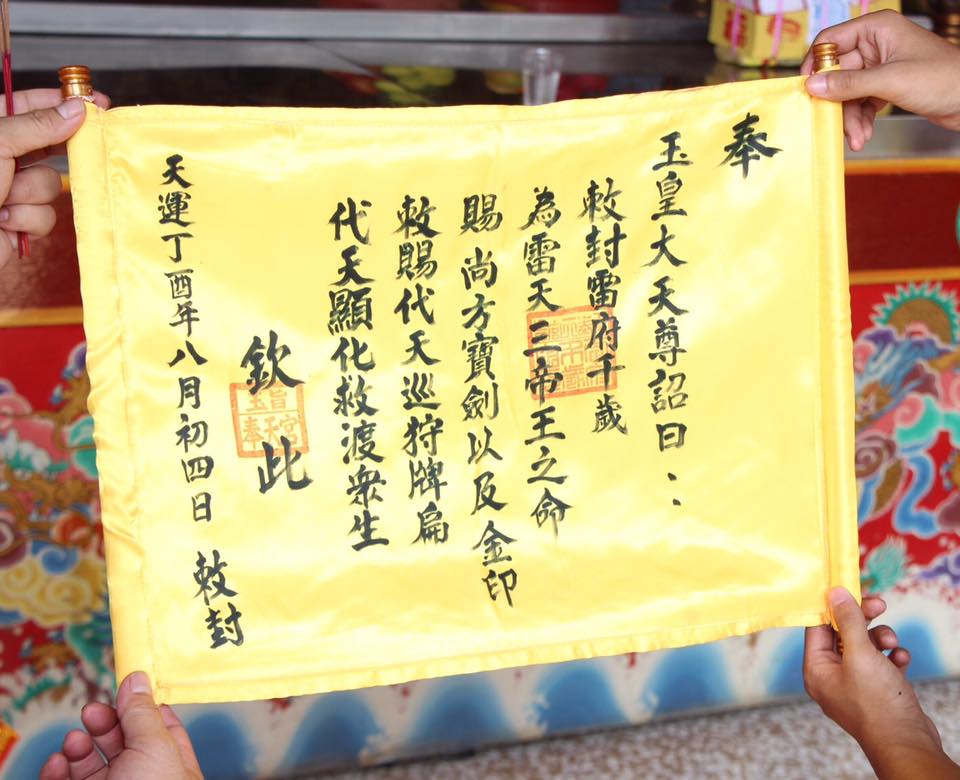 奉
玉皇大天尊詔曰：
敕封雷府千歲
為雷天三帝王之命
賜尚方寶劍以及金印
敕賜代天巡狩牌扁
代天顯化救渡眾生
欽此
玉旨
奉天宮
天運丁酉年八月初四日 敕封